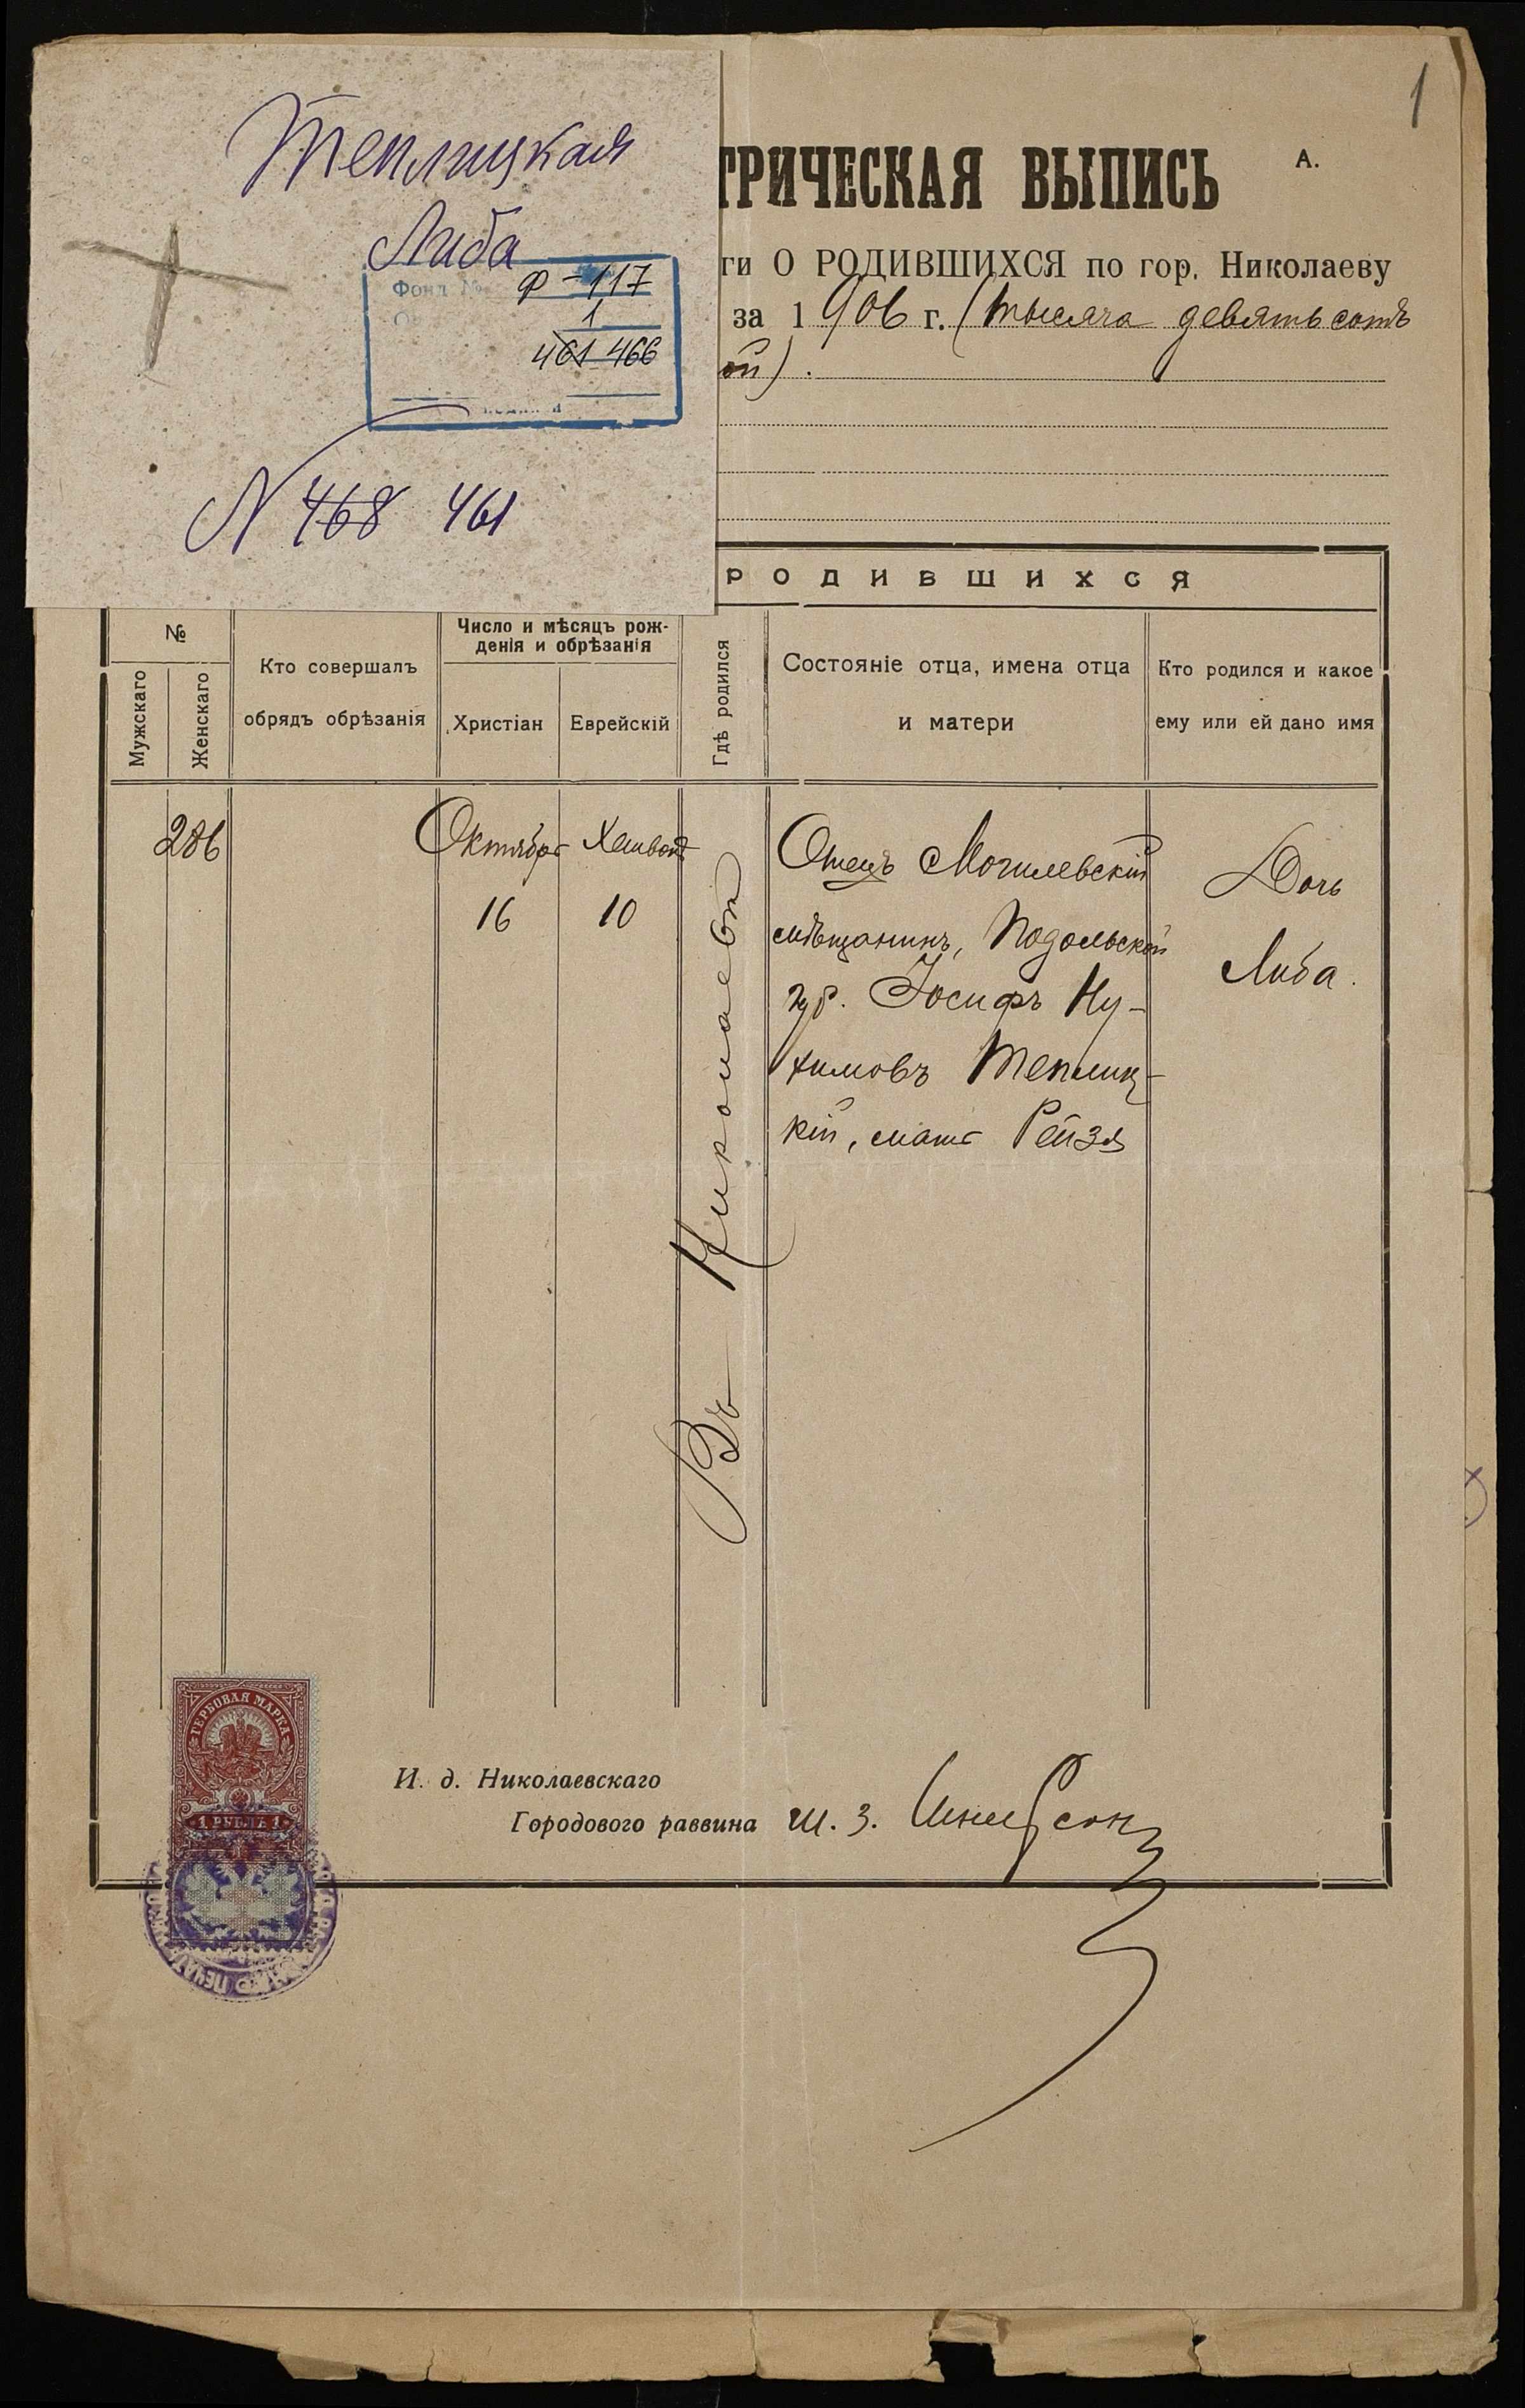 1
Теплицкая
Либа
Фонд № Ф-117
1
461 466
N 468 461
ТРИЧЕСКАЯ ВЫПИСЬ
А.
ги О РОДИВШИХСЯ по гор. Николаеву
за 1906 г. (тысяча девятьсотъ
ой).
РОДИВШИХСЯ
№
Мужскаго
Женскаго
Кто совершалъ
обрядъ обрѣзанія
Число и мѣсяцъ рож-
денія и обрѣзанія
Христіан
Еврейскій
Гдѣ родился
Состояніе отца, имена отца
и матери
Кто родился и какое
ему или ей дано имя
286
Октября
16
Хешвонъ
10
Въ Николаевѣ
Отецъ Могилевскій
мѣщанинъ, Подольской
губ. Іосифъ Ну-
химовъ Теплиц-
кій, мать Рейзя
Дочь
Либа.
ГЕРБОВАЯ МАРКА
1 РУБЛЬ 1
И. д. Николаевскаго
Городового раввина Ш. З. Шнеерсон